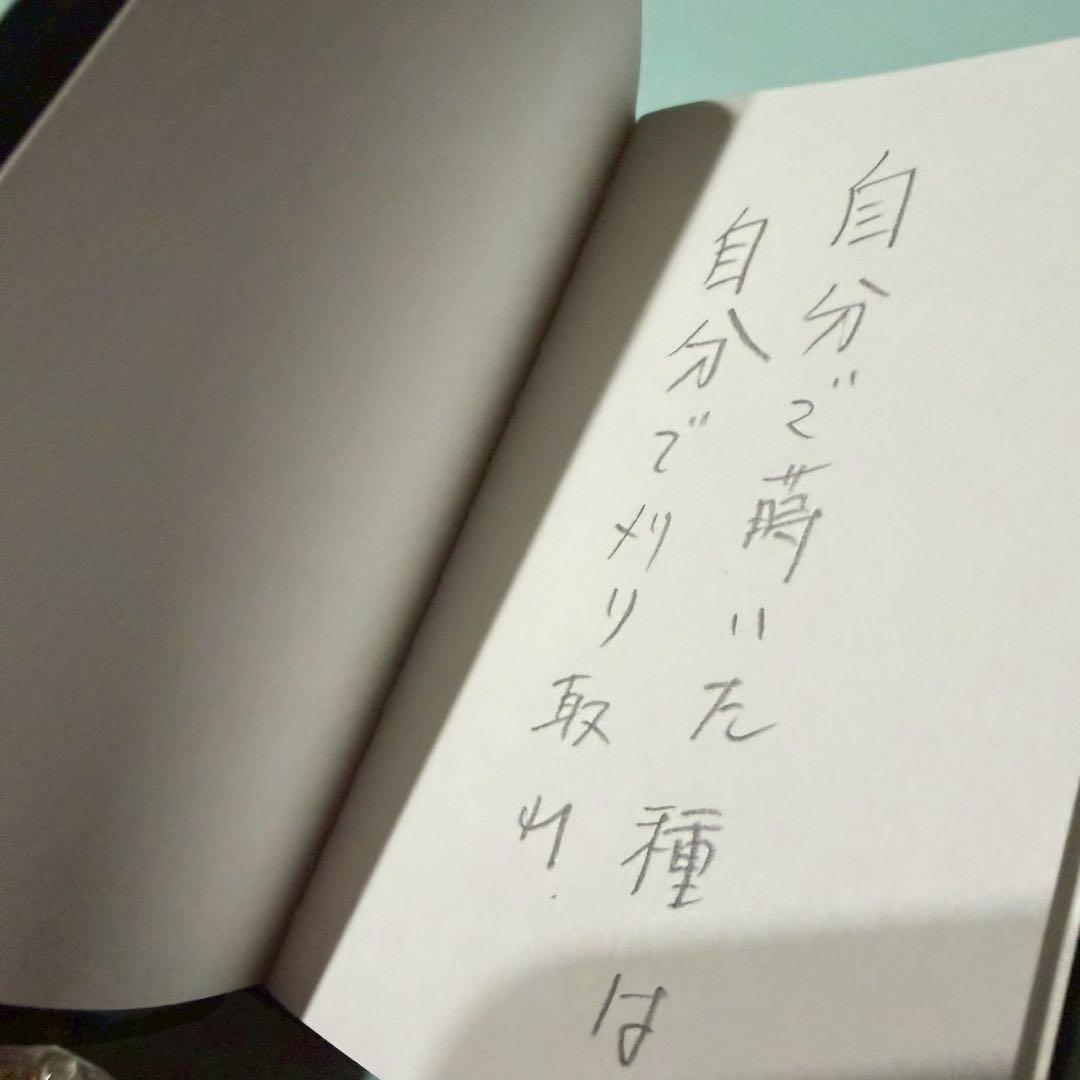 自分で蒔いた種は
自分で刈り取れ.